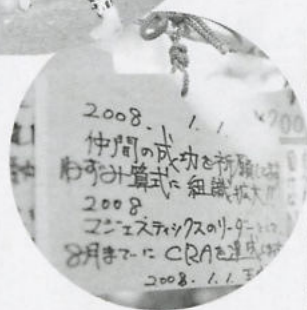 2008. 1. 1.
仲間の成功を祈願
ねずみ算式に組織拡大!!
2008
マジェスティックスのリーダーとして
8月までにCRAを達成
2008.1.1.